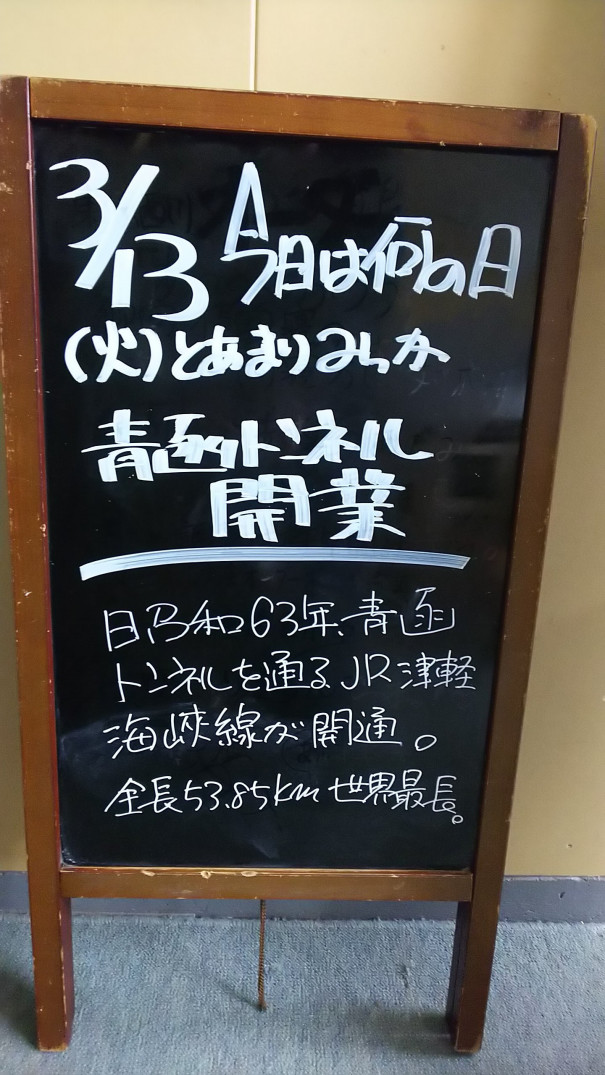 3/13 今日は何の日
(火)とあまりみらか
青函トンネル
開業
昭和63年、青函
トンネルを通るJR津軽
海峡線が開通。
全長53.85km世界最長。